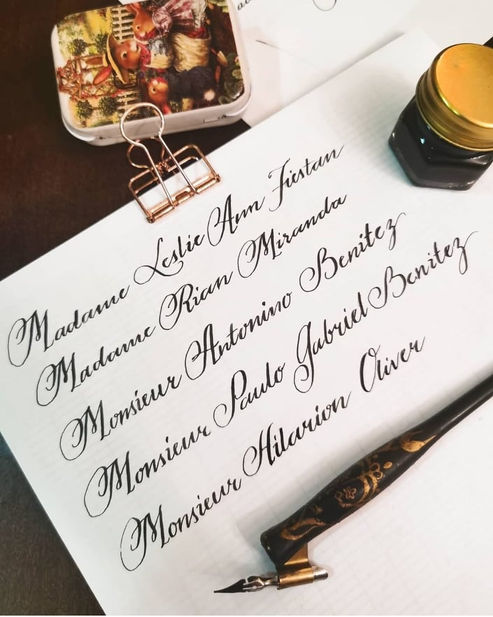 Madame Leslie Ann Fustan
Madame Rian Miranda
Monsieur Antonino Benitez
Monsieur Paulo Gabriel Benitez
Monsieur Hilarion Oliver